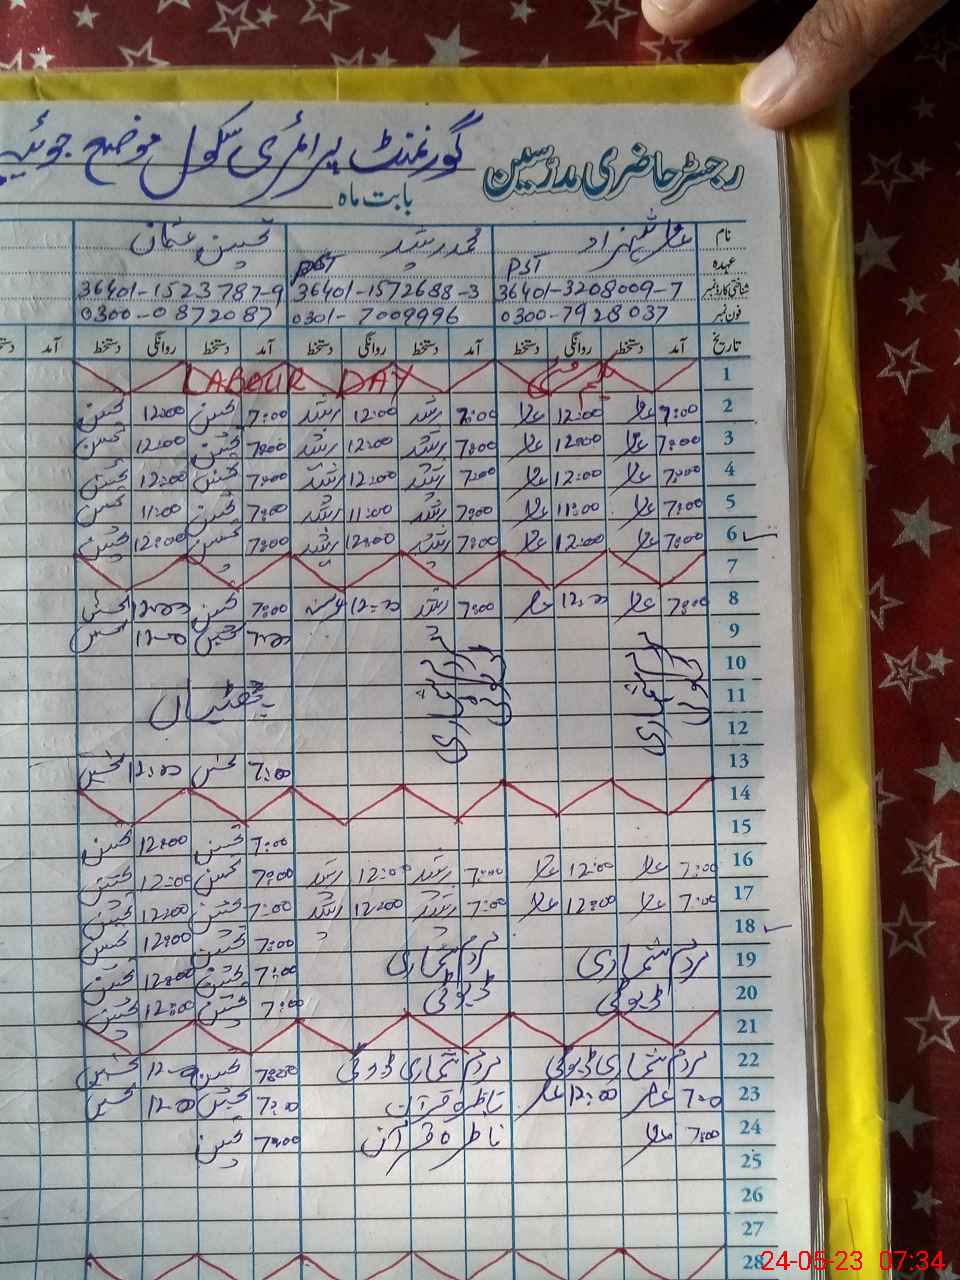 رجسٹر حاضری مدرسین گورنمنٹ پرائمری سکول موضع جوئیہ
بابت ماہ
نام عامر شہزاد محمد رشید تحسین عثمان
عہدہ PST PST
شناختی کارڈ نمبر 36401-3208009-7 36401-1572688-3 36401-1523787-9
فون نمبر 0300-7928037 0301-7009996 0300-0872087
تاریخ آمد دستخط روانگی دستخط آمد دستخط روانگی دستخط آمد دستخط روانگی دستخط آمد
1 یکم مئی LABOUR DAY
2 7:00 12:00 رشید 7:00 رشید 12:00 تحسین 7:00 تحسین 12:00
3 7:00 12:00 رشید 7:00 رشید 12:00 تحسین 7:00 تحسین 12:00
4 7:00 12:00 رشید 7:00 رشید 12:00 تحسین 7:00 تحسین 12:00
5 7:00 11:00 رشید 7:00 رشید 11:00 تحسین 7:00 تحسین 11:00
6 7:00 12:00 رشید 7:00 رشید 12:00 تحسین 7:00 تحسین 12:00
7
8 7:00 12:00 7:00 رشید 12:00 تحسین 7:00 تحسین 12:00
9 7:00 تحسین 12:00 تحسین
10
11 چھٹیاں
12
13 7:00 تحسین 12:00 تحسین
14
15 7:00 تحسین 12:00 تحسین
16 7:00 12:00 رشید 7:00 رشید 12:00 تحسین 7:00 تحسین 12:00
17 7:00 12:00 رشید 7:00 رشید 12:00 تحسین 7:00 تحسین 12:00
18 7:00 تحسین 12:00 تحسین
19 مردم شماری مردم شماری 7:00 تحسین 12:00 تحسین
20 ڈیوٹی ڈیوٹی 7:00 تحسین 12:00 تحسین
21
22 مردم شماری ڈیوٹی مردم شماری ڈیوٹی 7:00 تحسین 12:00 تحسین
23 7:00 12:00 ناظرہ قرآن 7:00 تحسین 12:00 تحسین
24 7:00 ناظرہ قرآن 7:00 تحسین
25
26
27
28
24-05-23 07:34